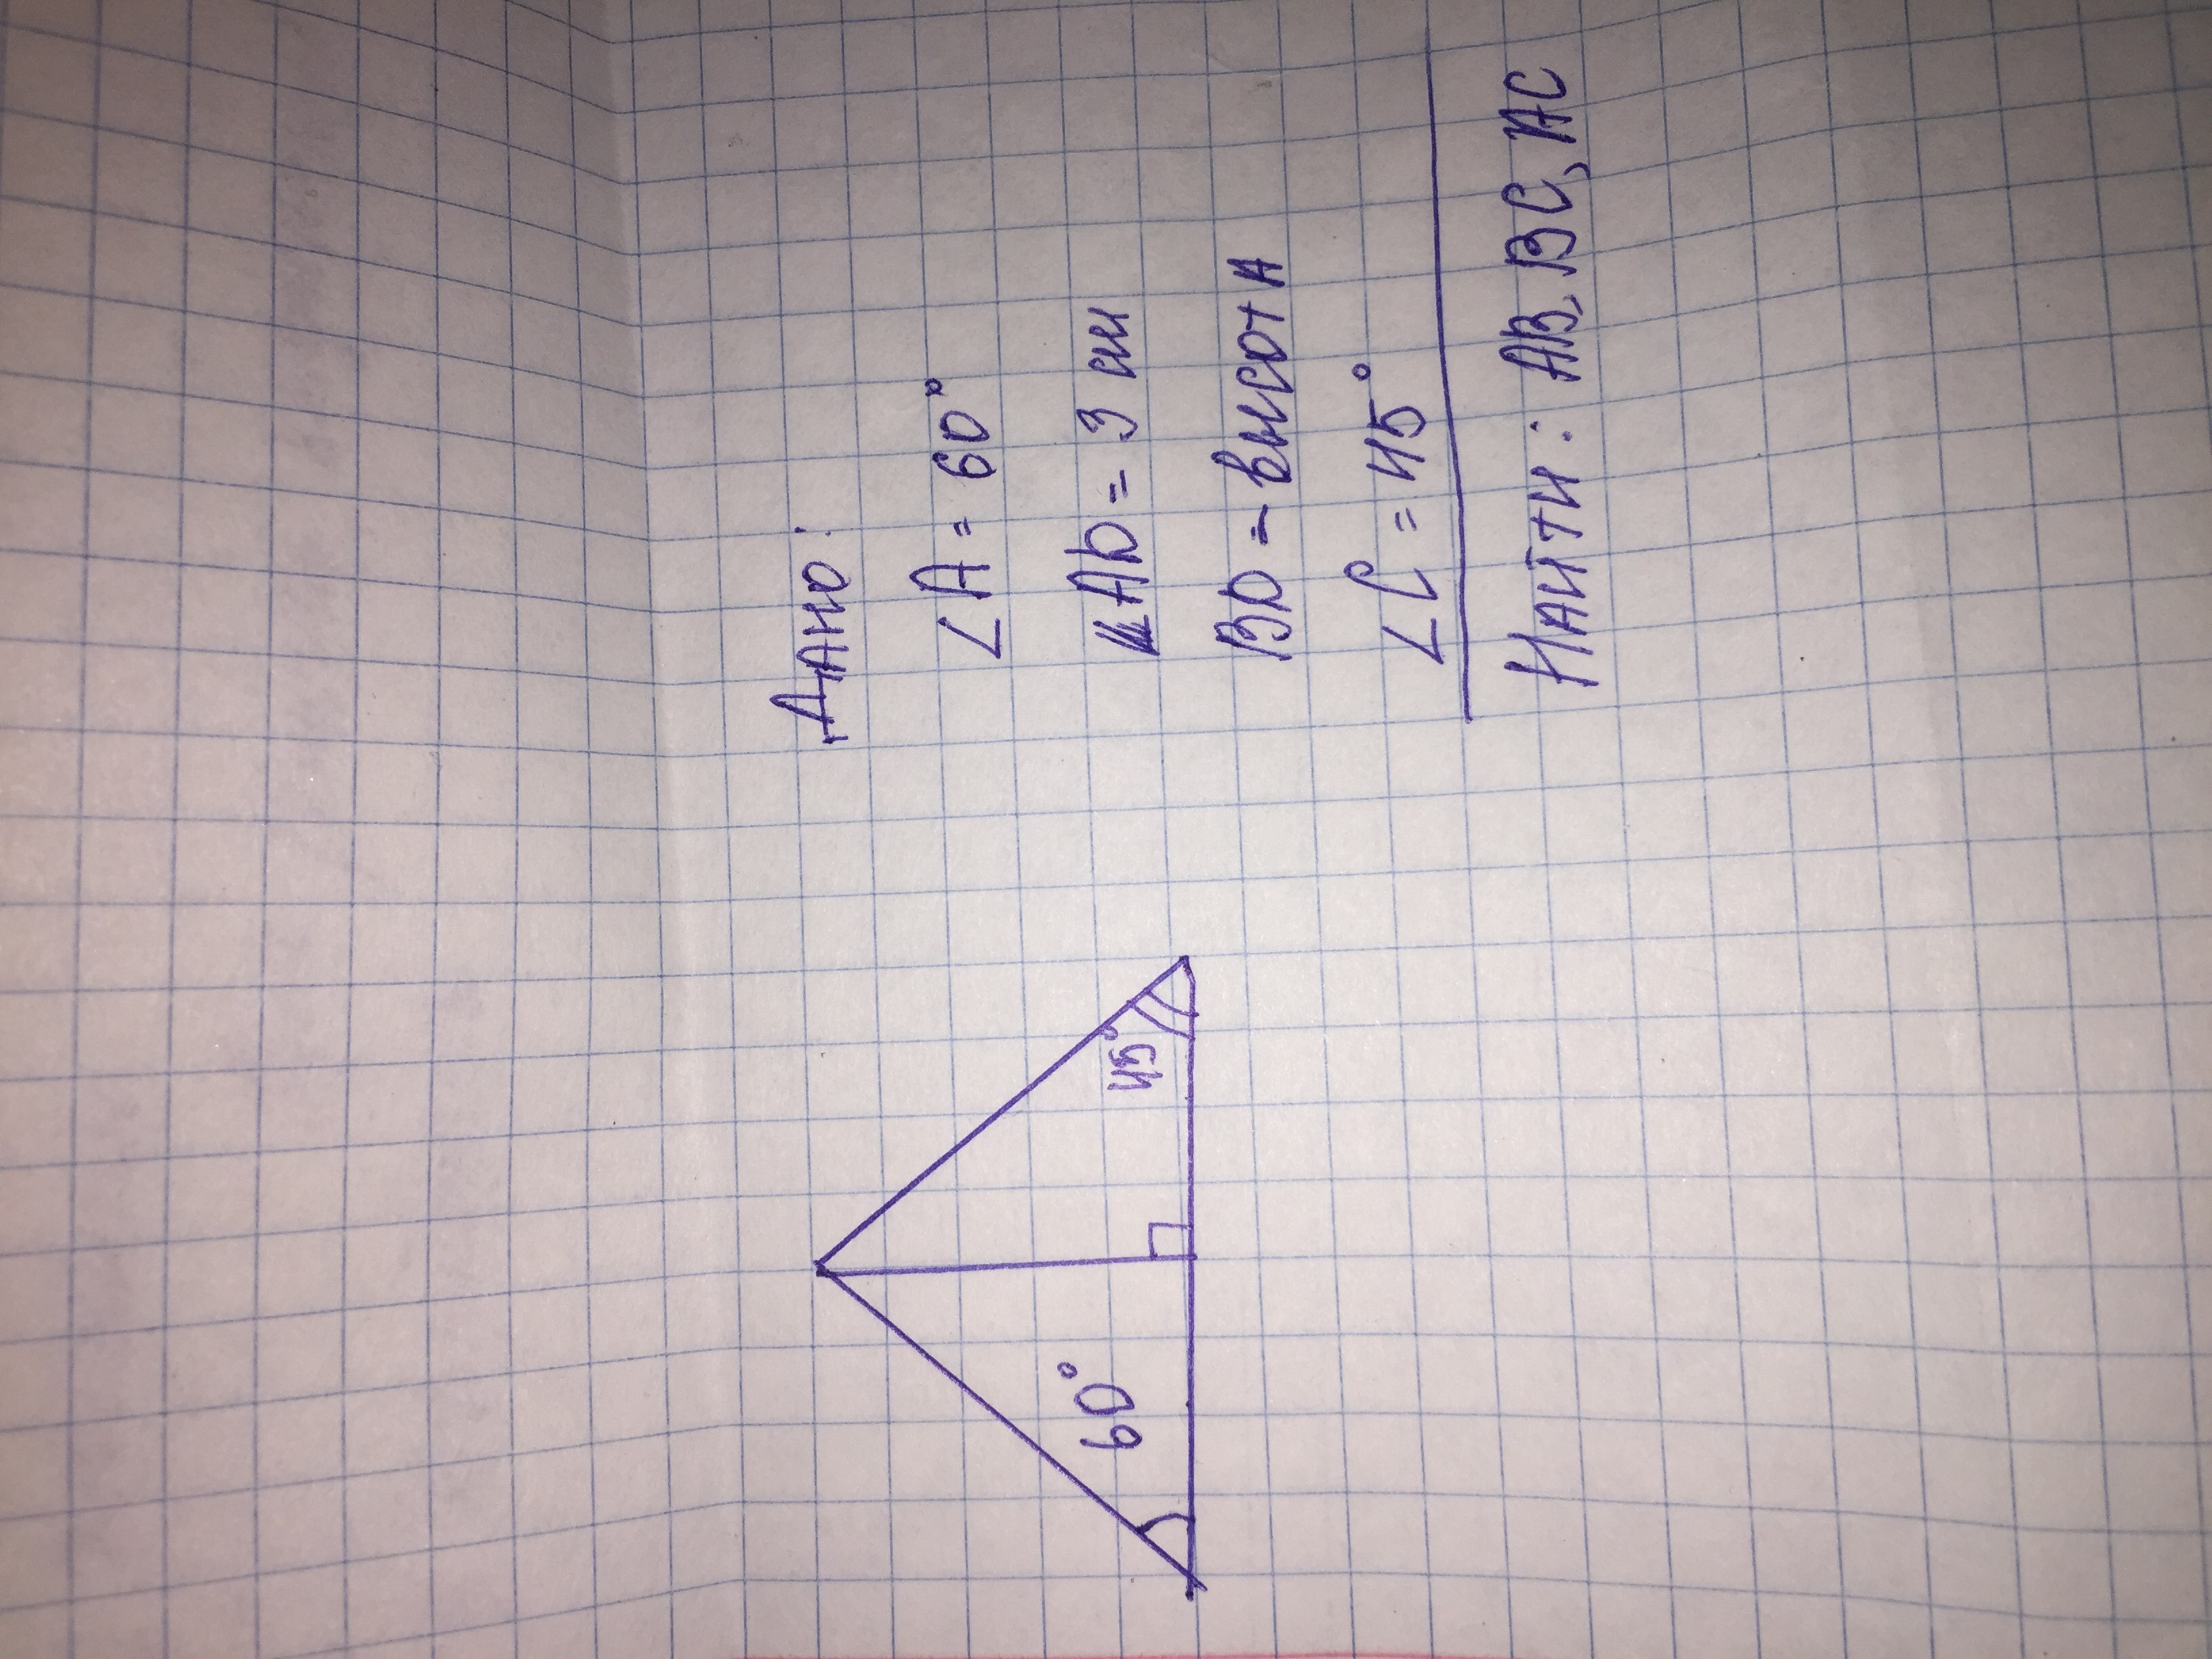 Дано:
∠A = 60°
AD = 3 см
BD - высота
∠C = 45°
Найти: AB, BC, AC
60°
45°